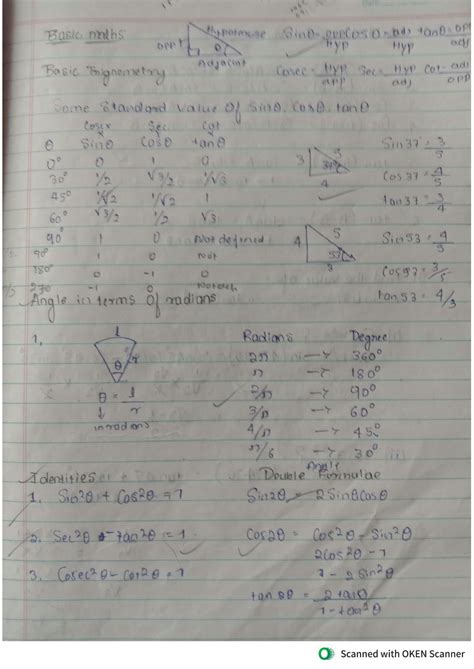 Basic maths
Hypotenuse
Opp
θ
Adjacent
Sinθ = opp/Hyp Cosθ = adj/Hyp tanθ = opp/adj
Basic Trignometry
Cosec = Hyp/opp Sec = Hyp/adj Cot = adj/opp
Some Standard value of Sinθ, Cosθ, tanθ
Cosec Sec Cot
θ Sinθ Cosθ tanθ
0° 0 1 0
30° 1/2 √3/2 1/√3
45° 1/√2 1/√2 1
60° √3/2 1/2 √3
90° 1 0 Not defined
180° 0 -1 0
270 -1 0
3 5 37° 4
Sin37 = 3/5
Cos37 = 4/5
tan37 = 3/4
4 5 53° 3
Sin53 = 4/5
Cos53 = 3/5
tan53 = 4/3
Angle in terms of radians
1,
l
θ r
θ = l/r
in radians
Radians Degree
2π → 360°
π → 180°
2/π → 90°
3/π → 60°
4/π → 45°
π/6 → 30°
Identities
1. Sin²θ + Cos²θ = 1
2. Sec²θ - tan²θ = 1
3. Cosec²θ - Cot²θ = 1
Double Angle Formulae
Sin2θ = 2SinθCosθ
Cos2θ = Cos²θ - Sin²θ
2Cos²θ - 1
1 - 2Sin²θ
tan2θ = 2tanθ/1-tan²θ
Scanned with OKEN Scanner